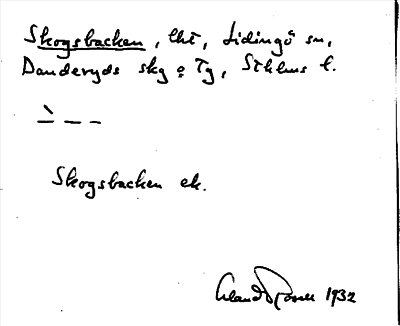 Skogsbacken, lht, Lidingö sn,
Danderyds skg o Tg, Sthlms l.
Skogsbacken ek.
Erland Rosell 1932